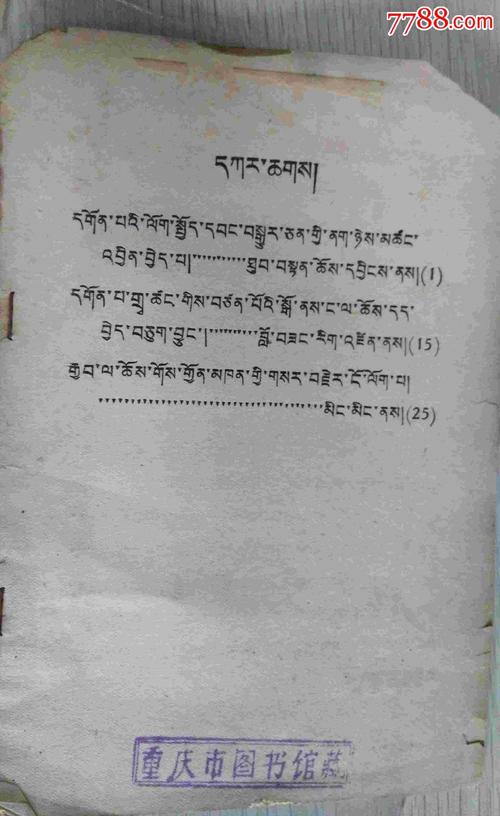 7788.com
དཀར་ཆགས།
དགོན་པའི་ལོག་སྤྱོད་དབང་བསྒྱུར་ཅན་གྱི་ནག་ཉེས་མཚང་
འབྲིན་བྱེད་པ།………ཐུབ་བསྟན་ཆོས་དབྱིངས་ནས།(1)
དགོན་པ་གྲྭ་ཚང་གིས་བཙན་པོའི་སྒོ་ནས་ང་ལ་ཆོས་དད་
བྱེད་བཅུག་བྱུང་།………བློ་བཟང་རིག་འཛིན་ནས།(15)
རྒྱབ་ལ་ཆོས་གོས་གྱོན་མཁན་གྱི་གསར་བརྗེར་ངོ་ལོག་པ།
…………………………མིང་མིང་ནས།(25)
重庆市图书馆藏